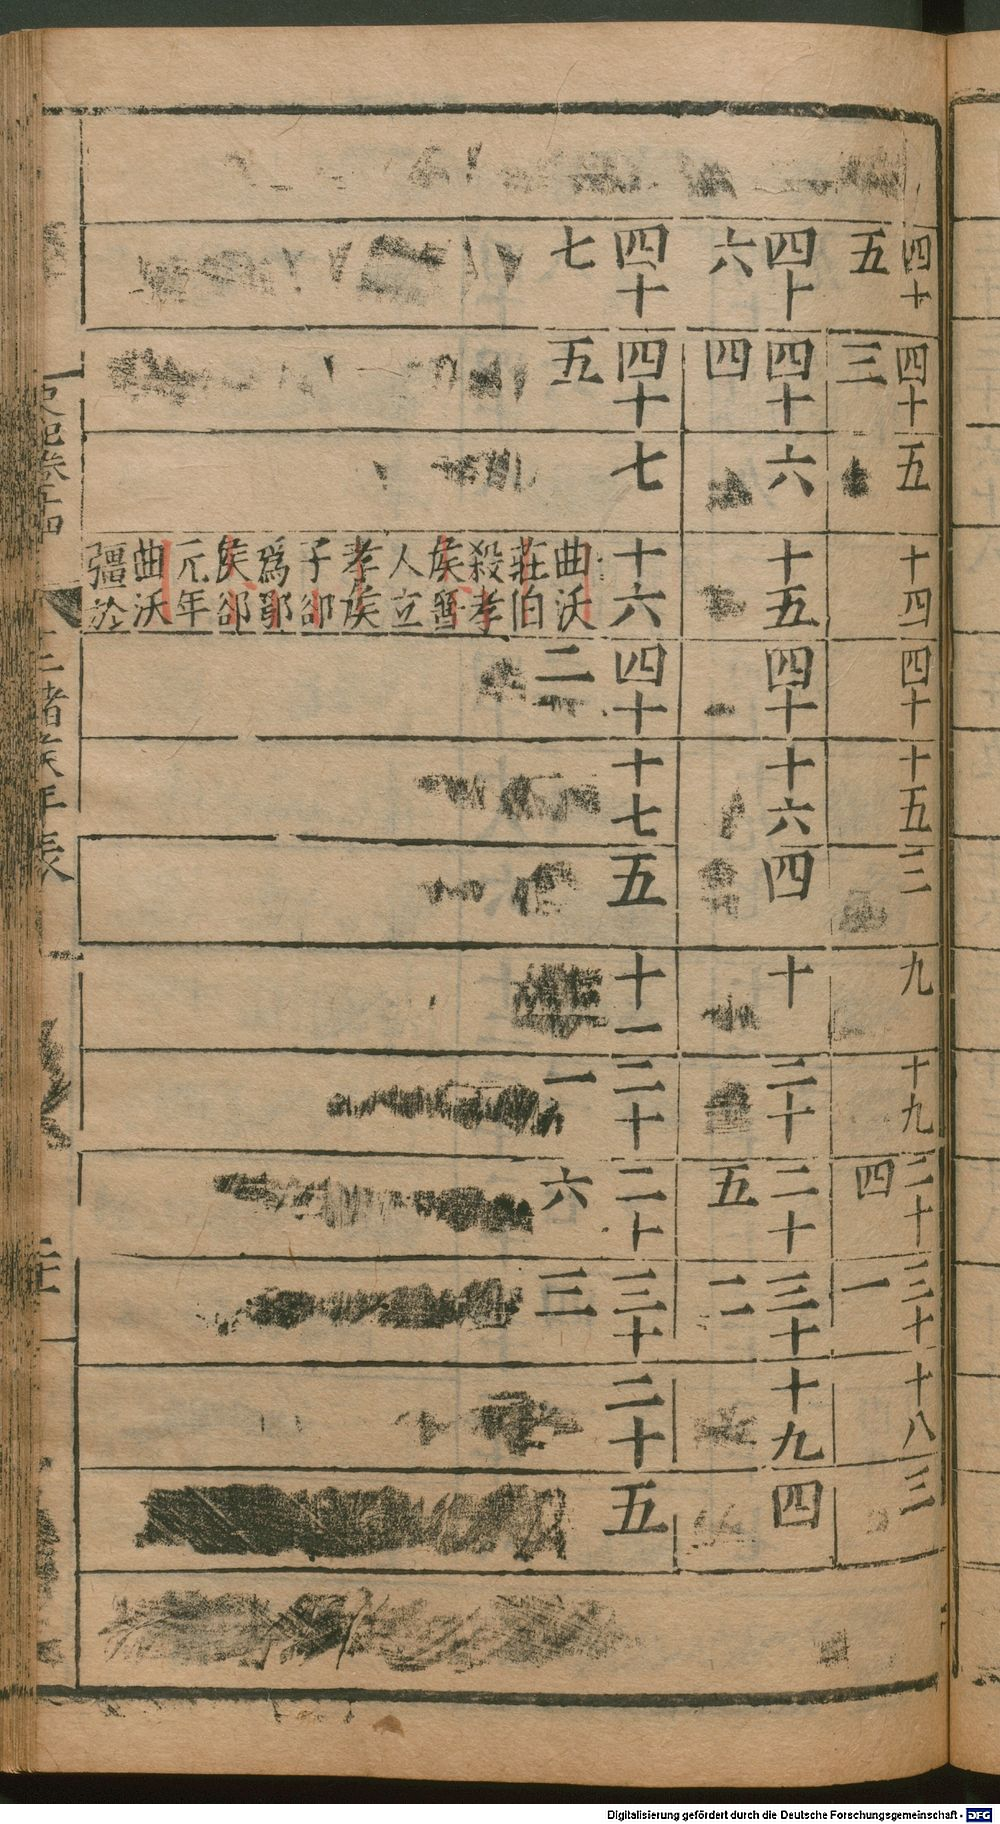 四十五
四十三
五
十四
四十
十五
三
九
十九
二十四
三十一
十八
三
四十六
四十四
六
十五
四十一
十六
四
十
二十
二十五
三十二
十九
四
四十七
四十五
七
十六
曲沃
莊伯
殺孝
矦晉
人立
孝矦
子郤
爲鄂
矦郤
元年
曲沃
彊於
四十二
十七
五
十一
二十一
二十六
三十三
二十
五
諸矦年表
Digitalisierung gefördert durch die Deutsche Forschungsgemeinschaft - DFG